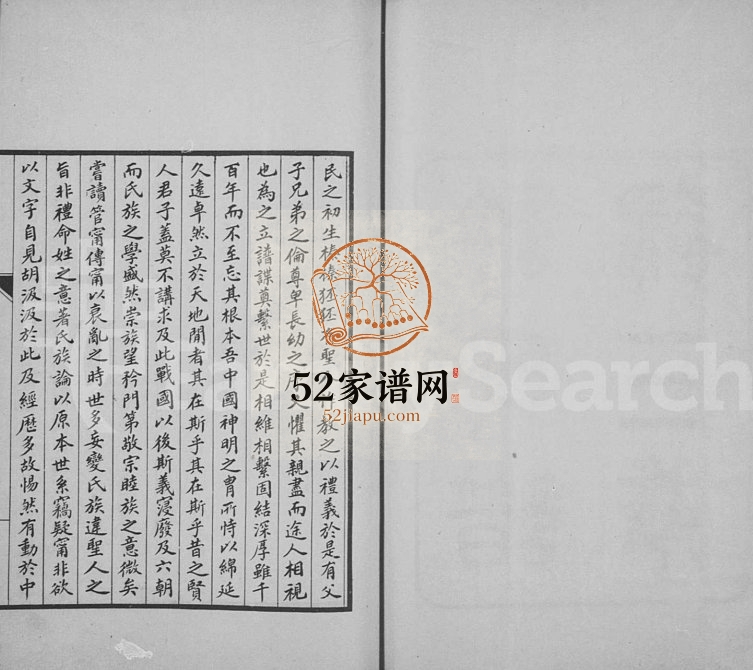 民之初生榛榛狉狉 聖 教之以禮義於是有父
子兄弟之倫尊卑長幼之 懼其親盡而途人相視
也為之立譜諜奠繫世於是相維相繫固結深厚雖千
百年而不至忘其根本吾中國神明之胄所恃以綿延
久遠卓然立於天地閒者其在斯乎其在斯乎昔之賢
人君子蓋莫不講求及此戰國以後斯義寖廢及六朝
而氏族之學盛然崇族望矜門第敬宗睦族之意微矣
嘗讀管甯傳甯以衰亂之時世多妄變氏族違聖人之
旨非禮命姓之意著氏族論以原本世系竊疑甯非欲
以文字自見胡汲汲於此及經歷多故惕然有動於中
52家谱网
52jiapu.com
Search